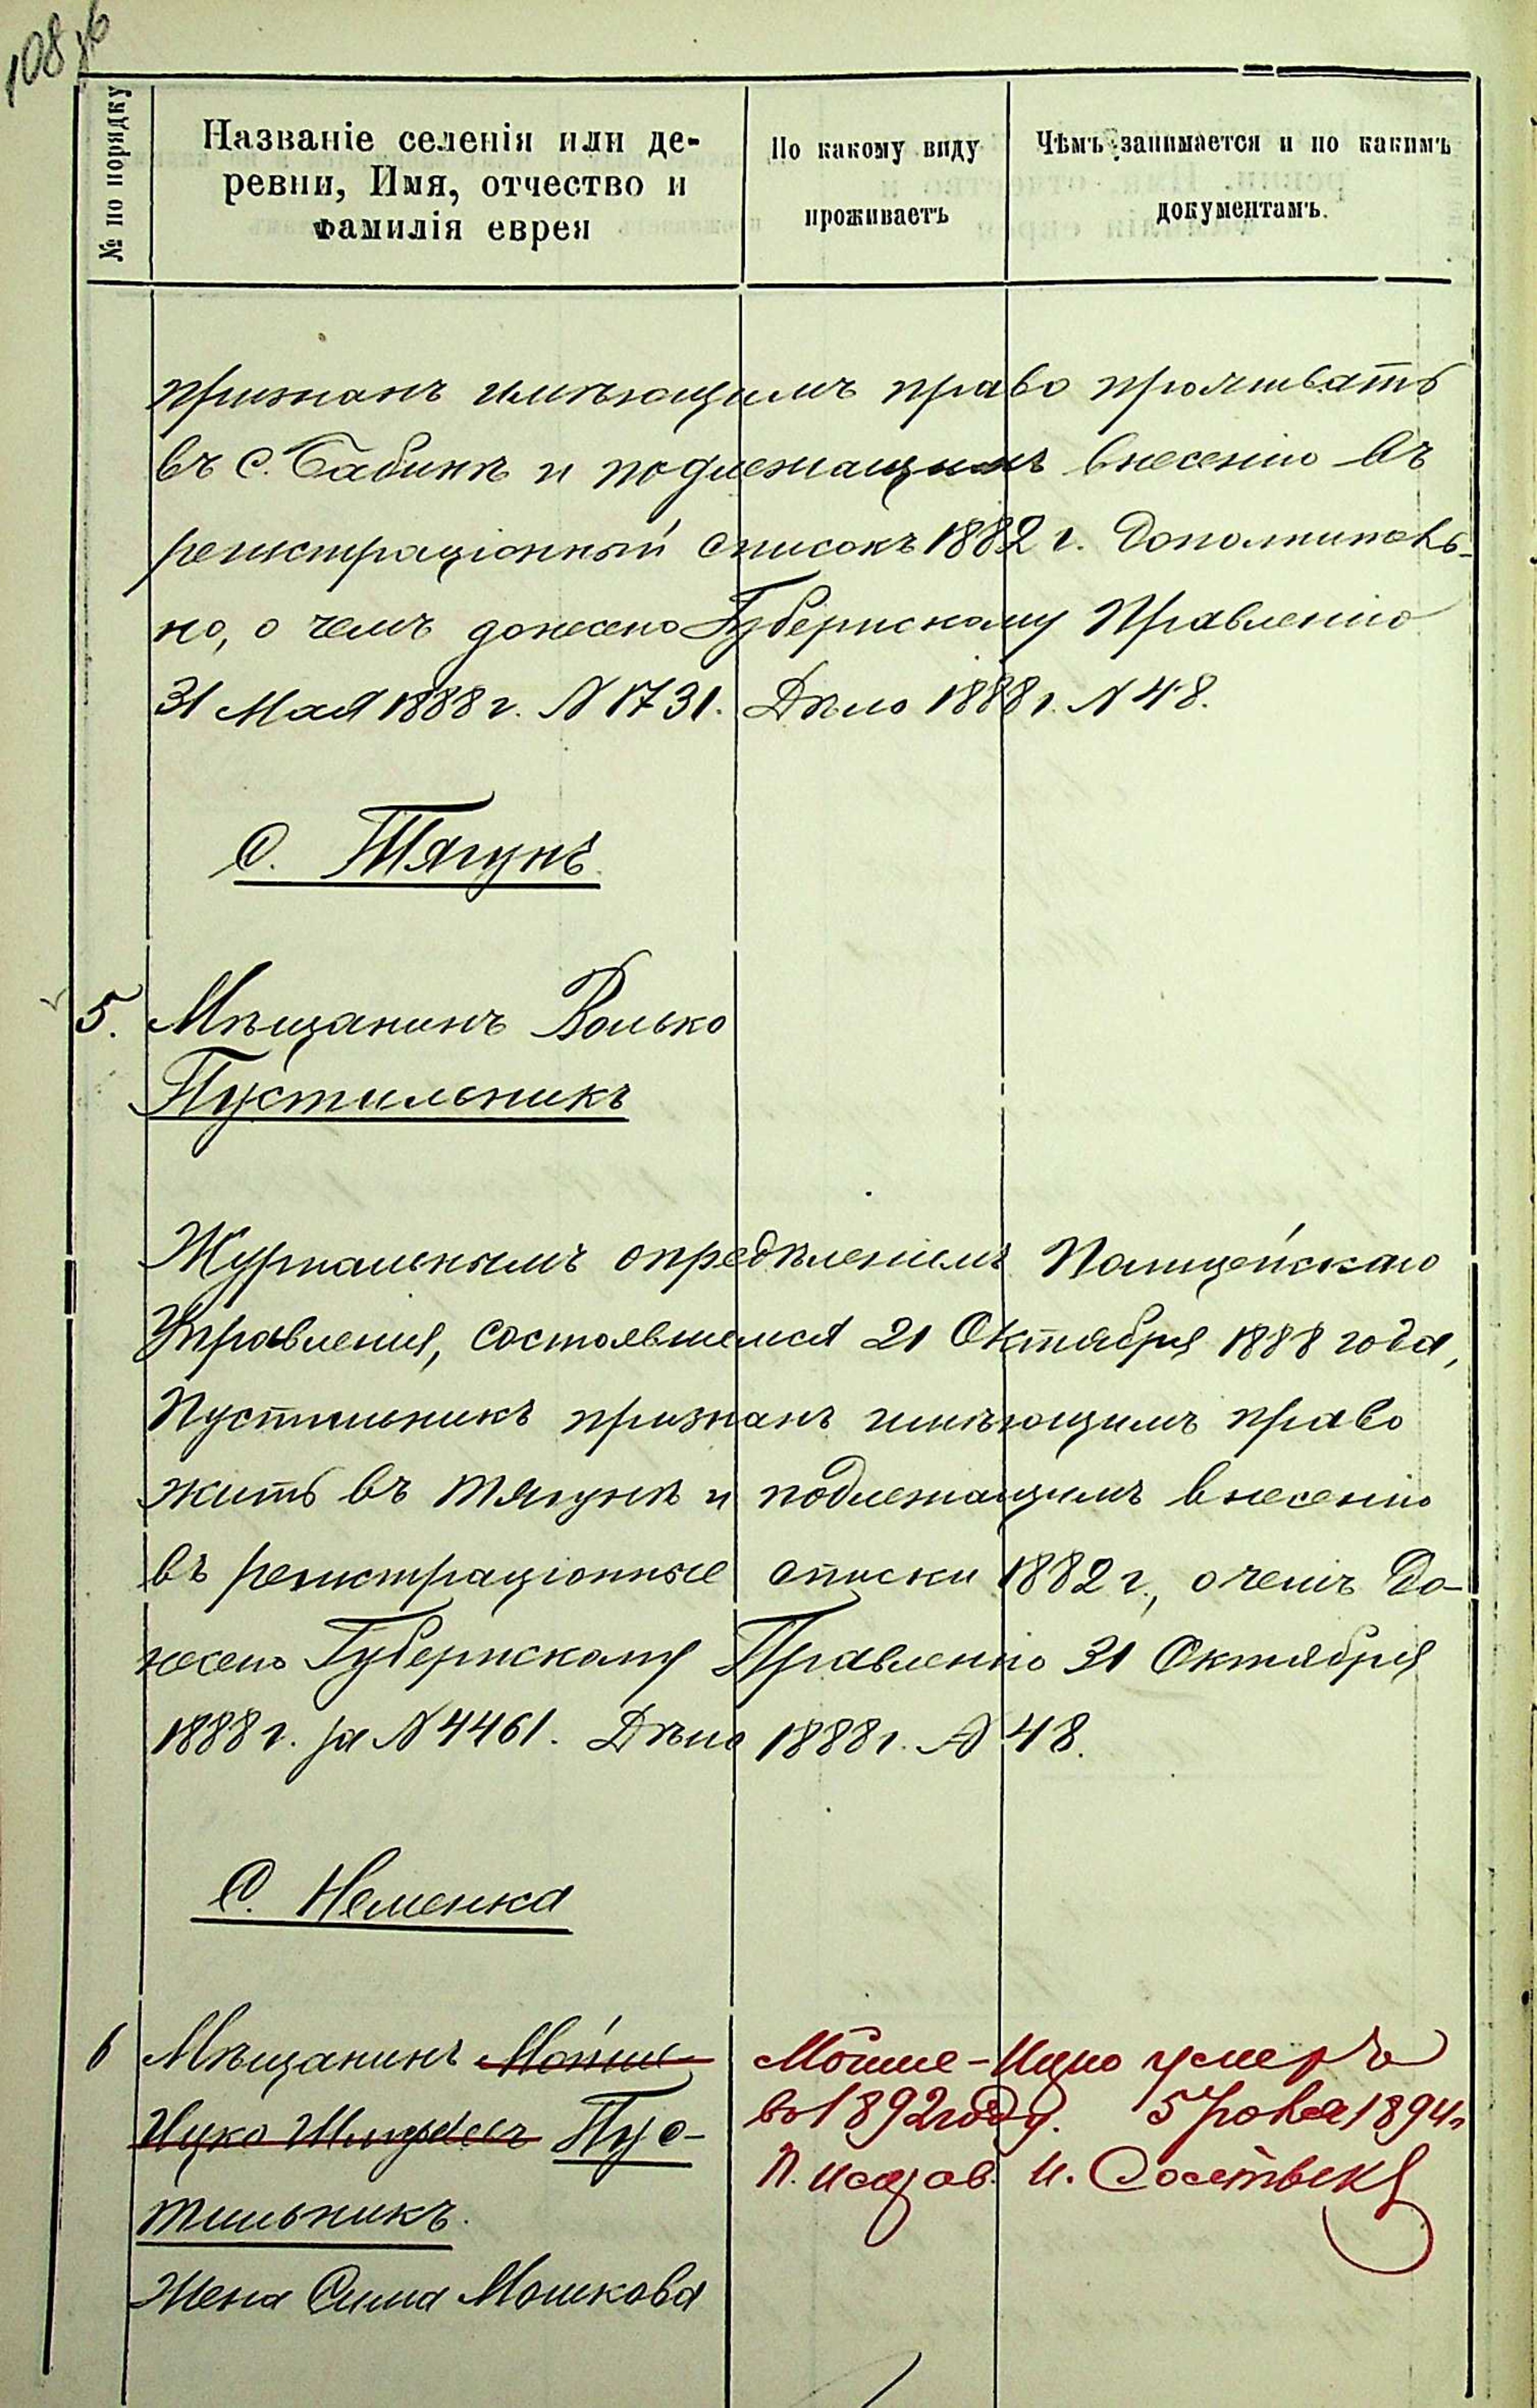 108 об
№ по порядку
Названіе селенія или де-
ревни, Имя, отчество и
Фамилія еврея
По какому виду
проживаетъ
Чѣмъ занимается и по какимъ
документамъ.
признанъ имѣющимъ право проживать
въ с. Бабинѣ и подлежащимъ внесенію въ
регистраціонный списокъ 1882 г. дополнитель-
но, о чемъ донесено Губернскому Правленію
31 Мая 1888 г. № 1731. Дѣло 1888 г. № 48.
С. Тягунъ
5. Мѣщанинъ Волько
Пустильникъ
Журнальнымъ опредѣленіемъ Полицейскаго
Управленія, состоявшемся 21 Октября 1888 года,
Пустильникъ признанъ имѣющимъ право
жить въ Тягунѣ и подлежащимъ внесенію
въ регистраціонные списки 1882 г., о чемъ до-
несено Губернскому Правленію 31 Октября
1888 г. за № 4461. Дѣло 1888 г. № 48.
С. Неменка
6 Мѣщанинъ Мойше
Ицко Пус-
тильникъ.
Жена Сима Мошкова
Мойше-Ицко умеръ
въ 1892 году. 5 1894 г.
П.